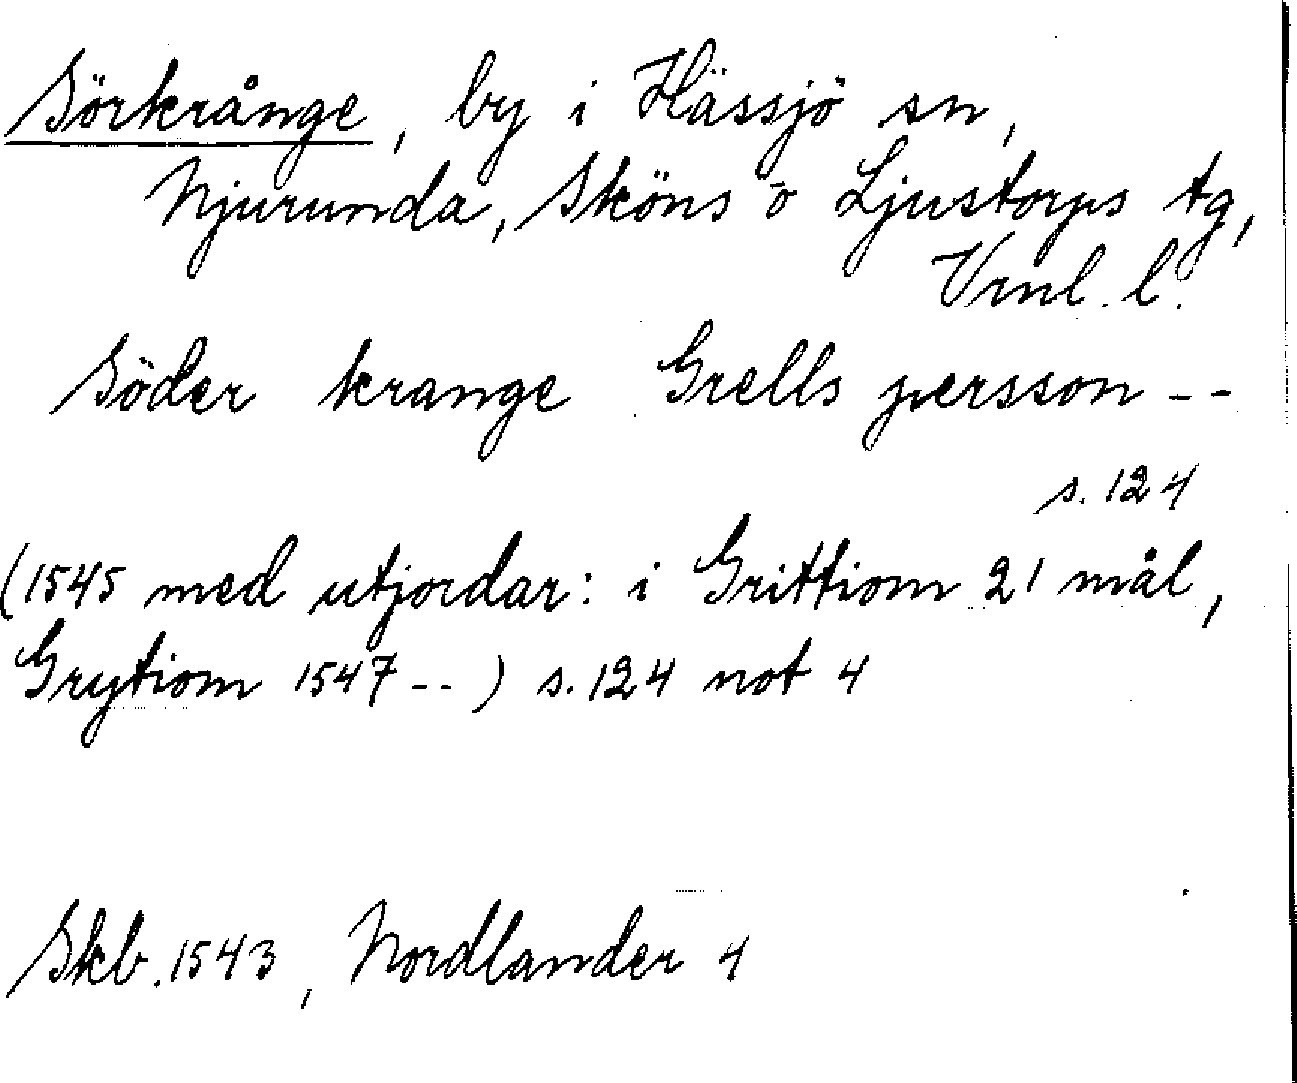 Sörkrånge, by i Hässjö sn,
Njurunda, Sköns o Ljustorps tg,
Vrnl. l.
Söder krange Grells persson --
s. 124
(1545 med utjordar: i Grittiom 21 mål,
Grytiom 1547 --) s. 124 not 4
Skb. 1543, Nordlander 4